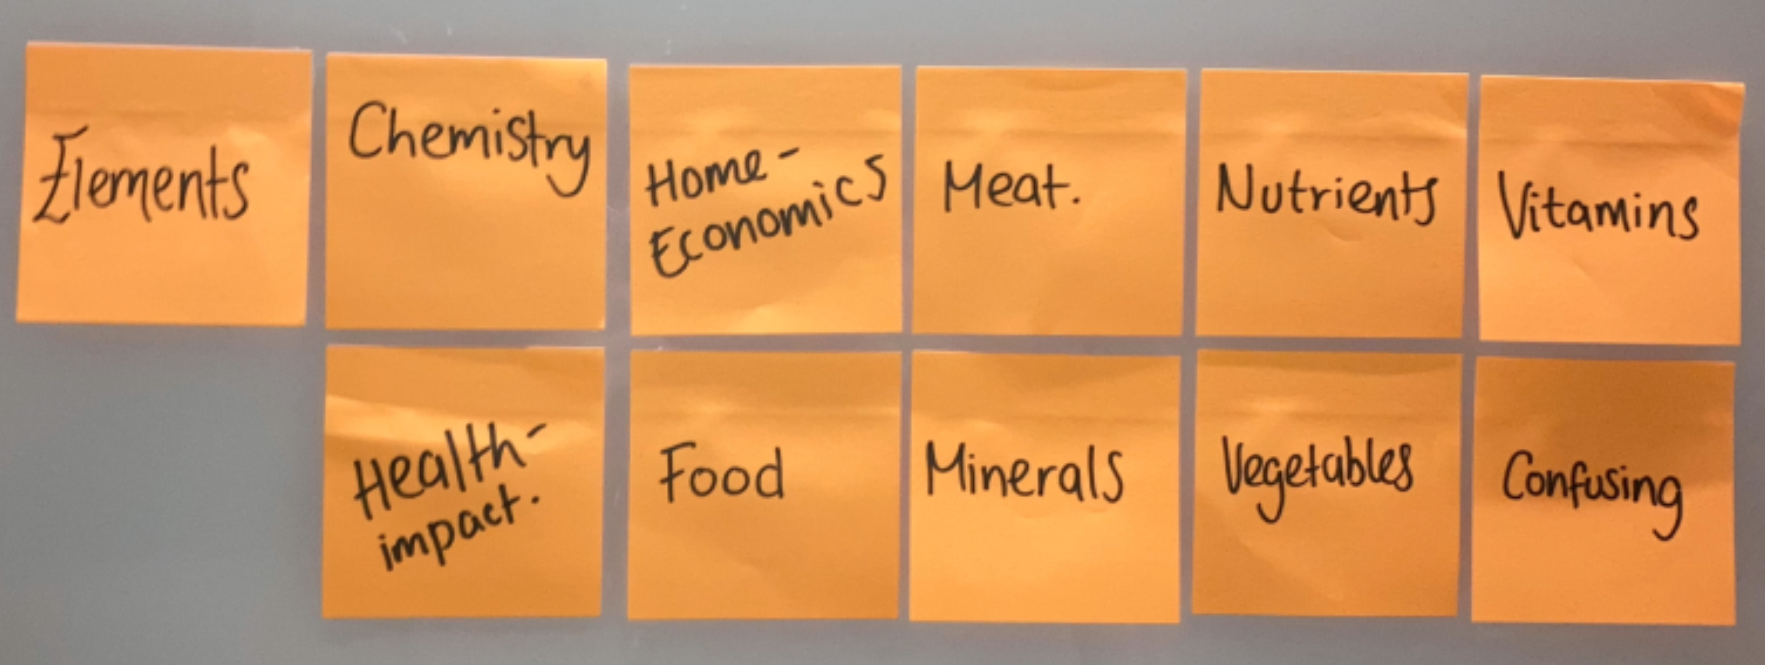 Elements
Chemistry
Home-
Economics
Meat.
Nutrients
Vitamins
Health-
impact.
Food
Minerals
Vegetables
Confusing